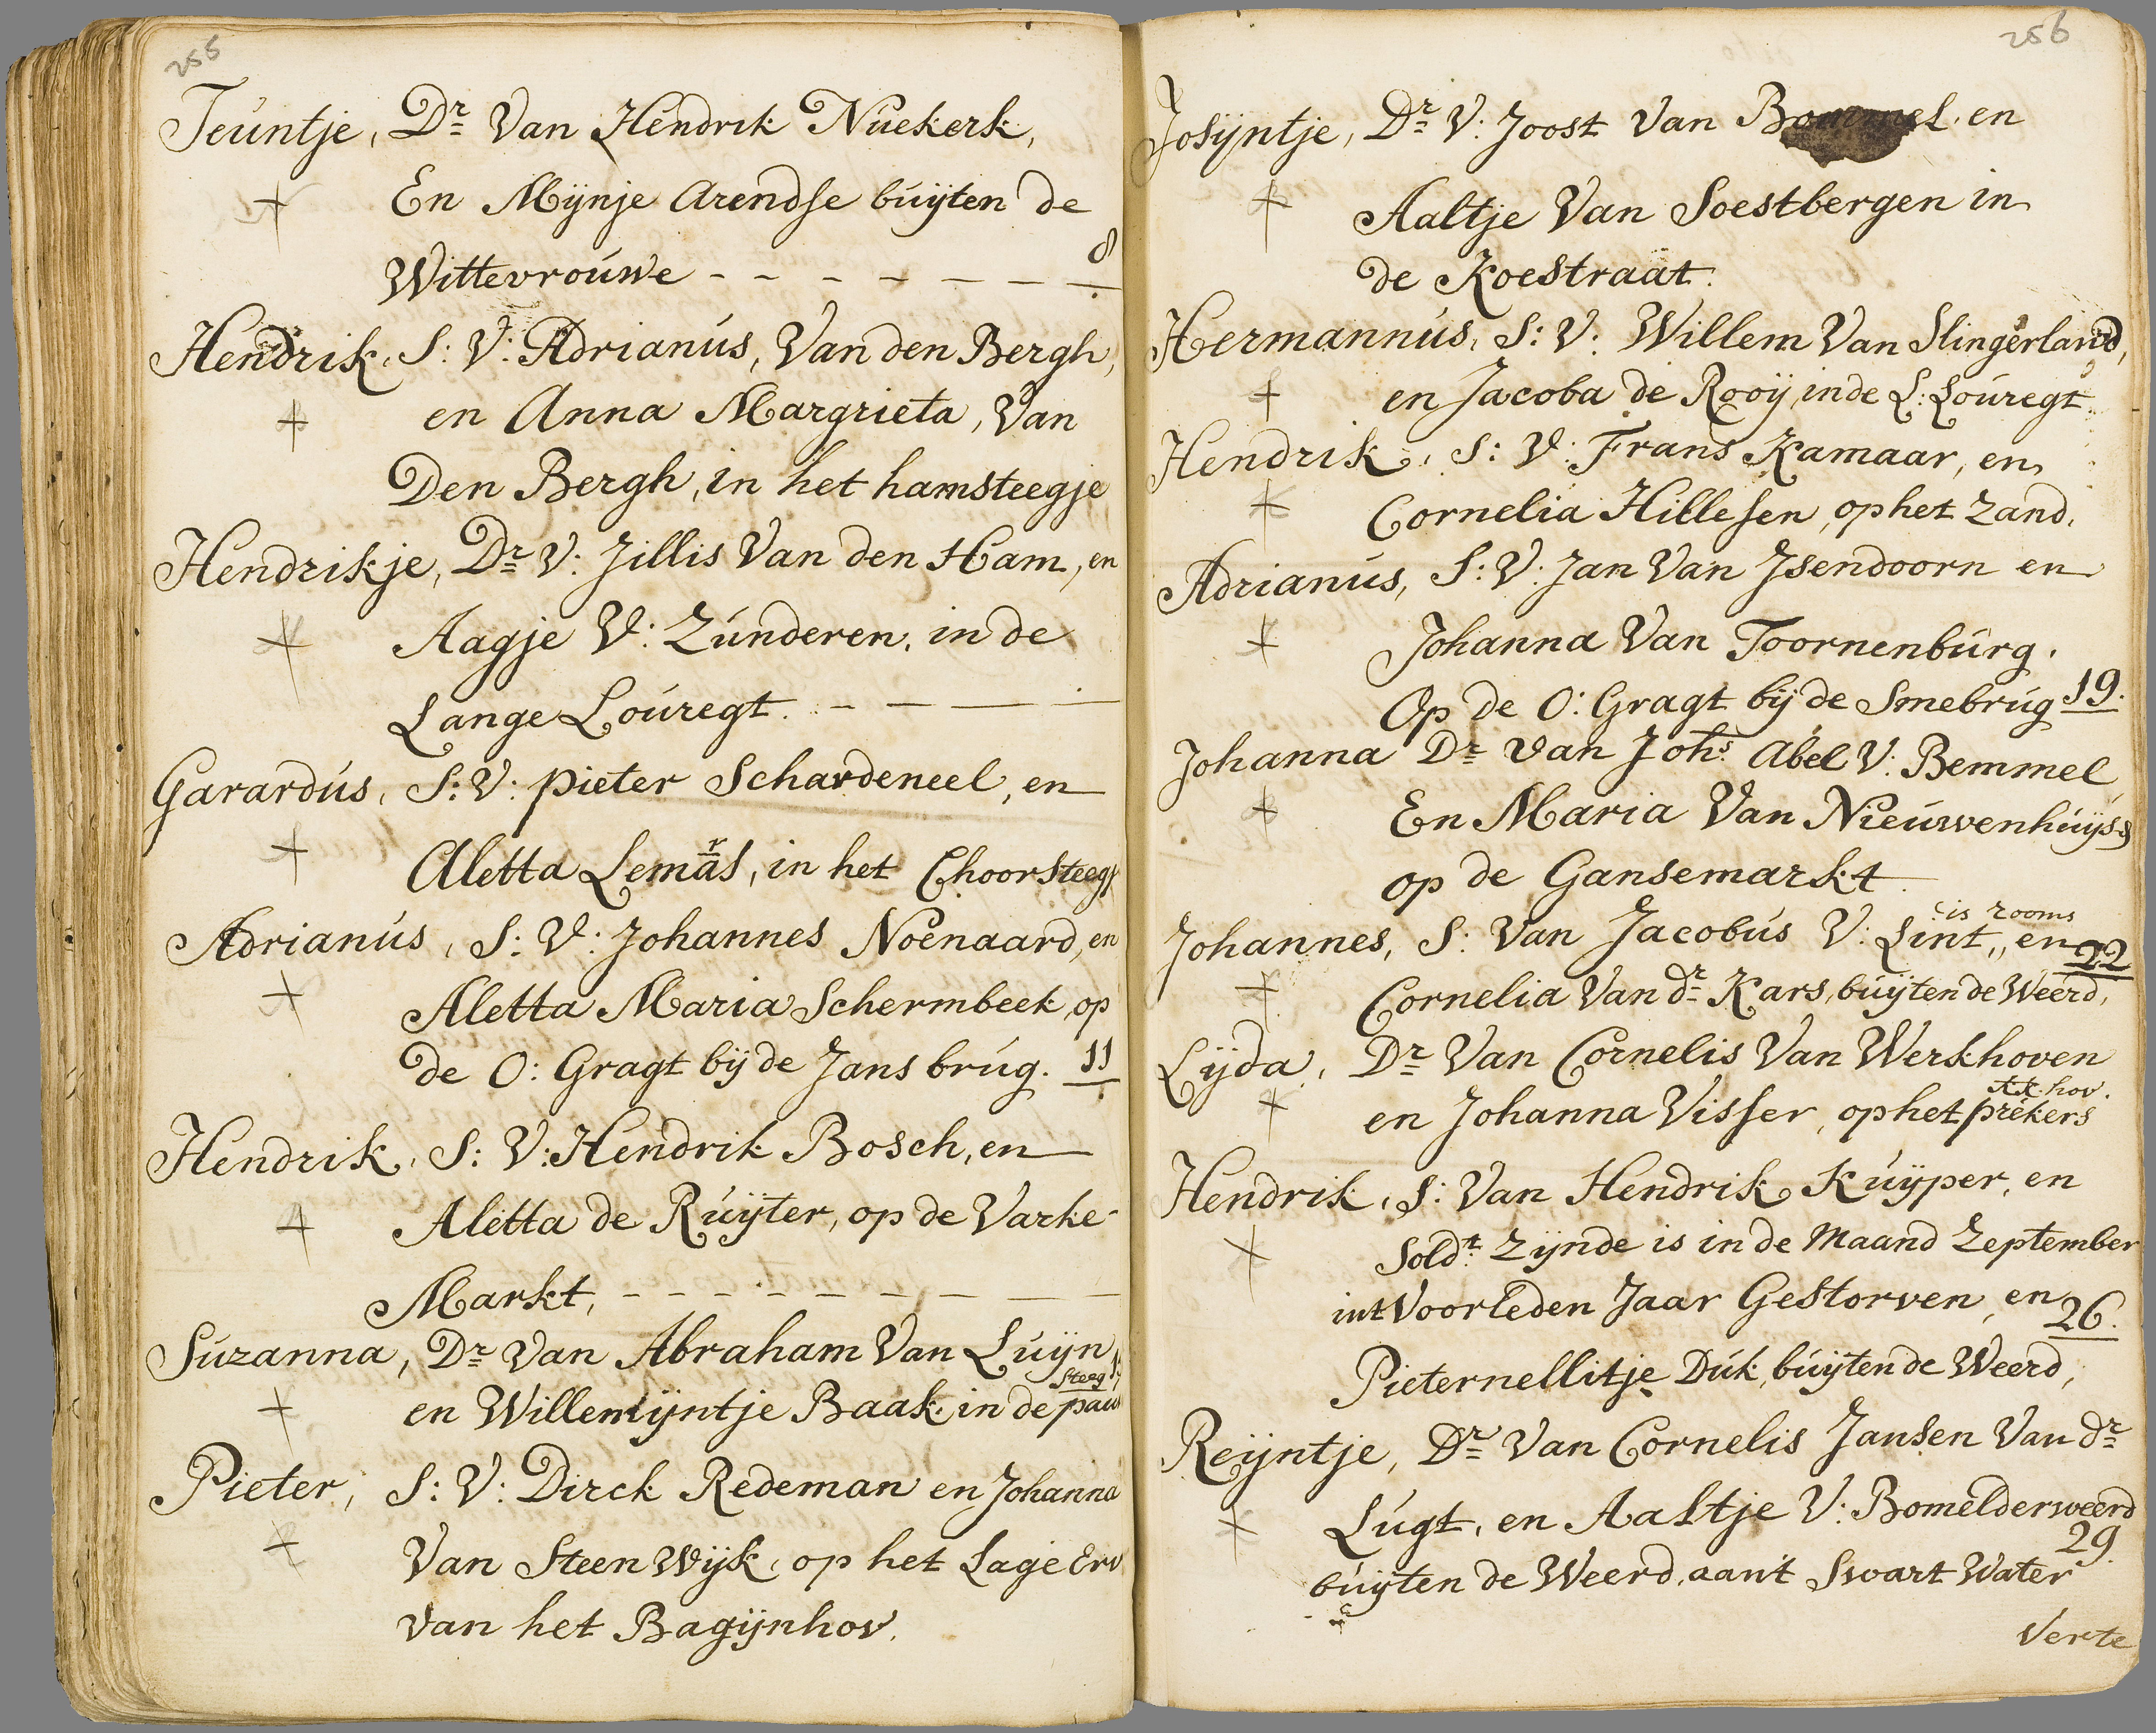 255
Teuntje, Dr. Van Hendrik Nuekerk,
En Mijnje Arendse buijten de
Wittevrouwe - - - - - - - 8
Hendrik, S: V: Adrianus, Van den Bergh,
en Anna Margrieta, Van
Den Bergh, in het hamsteegje
Hendrikje, Dr. V: Jillis Van den Ham, en
Aagje V: Zunderen, in de
Lange Louregt. - - - -
Garardus, S: V: Pieter Schardeneel, en
Aletta Lemars, in het Choorsteegj
Adrianus, S: V: Johannes Noenaard, en
Aletta Maria Schermbeek, op
de O: Gragt bij de Jans brug. 11
Hendrik, S: V: Hendrik Bosch, en
Aletta de Ruijter, op de Varke-
Markt, - - - - - - - -
Suzanna, Dr. Van Abraham Van Luijn
steeg
en Willemijntje Baak in de pau
Pieter, S: V: Dirck Redeman en Johanna
Van Steen Wijk, op het Lage Erv
van het Bagijnhov.
256
Josijntje, Dr. V: Joost Van Bommel. en
Aaltje Van Soestbergen in
de Koestraat.
Hermannus, S: V: Willem Van Slingerland,
en Jacoba de Rooij, in de L: Louregt
Hendrik, S: V: Frans Kamaar, en
Cornelia Hillesen, op het Zand.
Adrianus, S: V: Jan Van Jsendoorn en
Johanna Van Toornenburg.
Op de O: Gragt bij de Smebrug 19.
Johanna Dr. van Johs. Abel V: Bemmel
En Maria Van Nieuwenhuijs
op de Gansemarkt.
is rooms
Johannes, S: Van Jacobus V: Lint,, en 22
Cornelia Van dr. Kars, buijten de Weerd,
Lijda, Dr. Van Cornelis Van Werkhoven
kk. hov.
en Johanna Visser, op het prékers
Hendrik, S: Van Hendrik Kuijper, en
Soldt. Zijnde is in de Maand Zeptember
int Voorleden Jaar Gestorven, en 26.
Pieternellitje Duk, buijten de Weerd,
Reijntje, Dr. Van Cornelis Jansen Van dr.
Lugt, en Aaltje V: Bomelderweerd
29.
buijten de Weerd, aant Swart Water
Verte